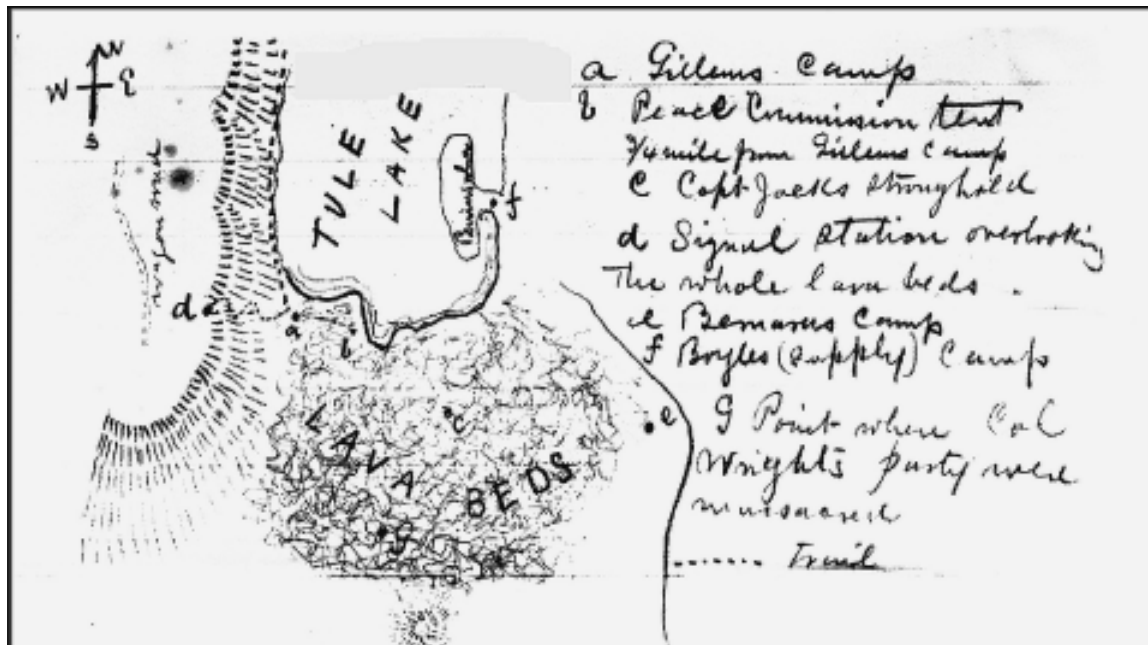 N
W E
S
wagon road
TULE
LAKE
Peninsula
f
d
a
b
c
e
LAVA
BEDS
g
a Gillems Camp
b Peace Commission tent
3/4 mile from Gillems Camp
c Capt Jacks stronghold
d Signal station overlooking
The whole lava beds.
e Bernards Camp
f Boyles (supply) Camp
g Point where Col
Wright's party were
massacred
------- trail